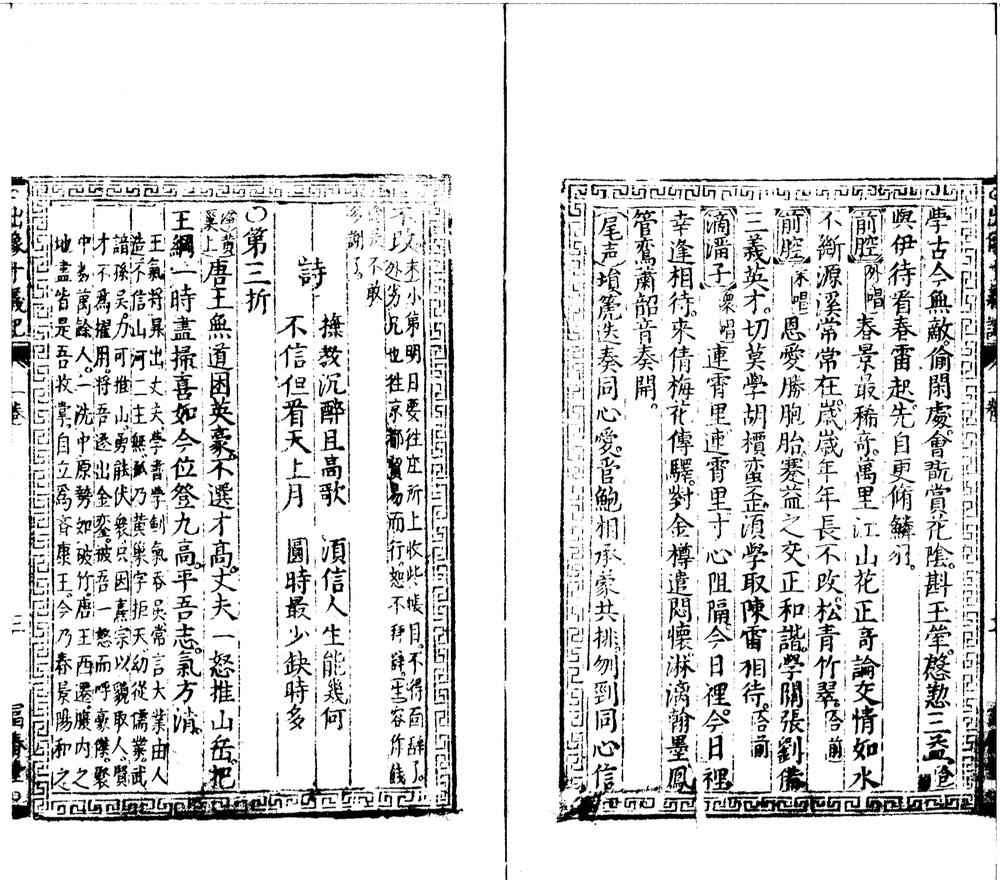 學古今無敵。偷閑處。會翫賞花陰。斟玉斝。慇懃三盃。
與伊待看春雷起。先自更脩鱗羽。
前腔 外唱 春景最稀奇。萬里江山花正奇。論交情如水
不斷源溪。常常在。歲歲年年長不改。松青竹翠。合前
前腔 末唱 恩愛勝胞胎。蹇益之交正和諧。學關張劉備
三義英才。切莫學胡櫝蛮丕。須學取陳雷相待。合前
滴溜子 衆唱 連霄里連霄里寸心阻隔。今日裡。今日裡
幸逢相待。來倩梅花傳驛。對金樽遣悶懷。淋漓翰墨。鳳
管鸞簫韶音奏開。
尾声 塤箎迭奏同心愛。管鮑相承蒙共排。刎到同心信
不改。末小弟明日要往庄所上收此帳目。不得面辞了。
外劣兄也往京都貿易而行。恕不拜辞。生容作餞
不敢
多謝了。
詩 撫教沉醉且高歌 須信人生能幾何
不信但看天上月 圓時最少缺時多
○第三折
淨黃巢上 唐王無道困英豪。不選才高。丈夫一怒推山岳。把
王綱一時盡掃。喜如今位登九高。平吾志。氣方消。
王氣將暴出丈夫學書學劍氣吞吳常言大業由人
造不信山河一主無。孤乃黃巢字拒天。幼從儒業。武
諳孫吳。力可推山。勇能伏衆。只因熹宗以貌取人。賢
才不為擢用。將吾逐出金鑾。被吾一怒而呼豪傑。娶
中為萬餘人。一洗中原。勢如破竹。唐王西遷。腹内之
地盡皆是吾收掌。自立為齊康王。今乃春景陽和之
出像十義記 一卷 三 富春堂